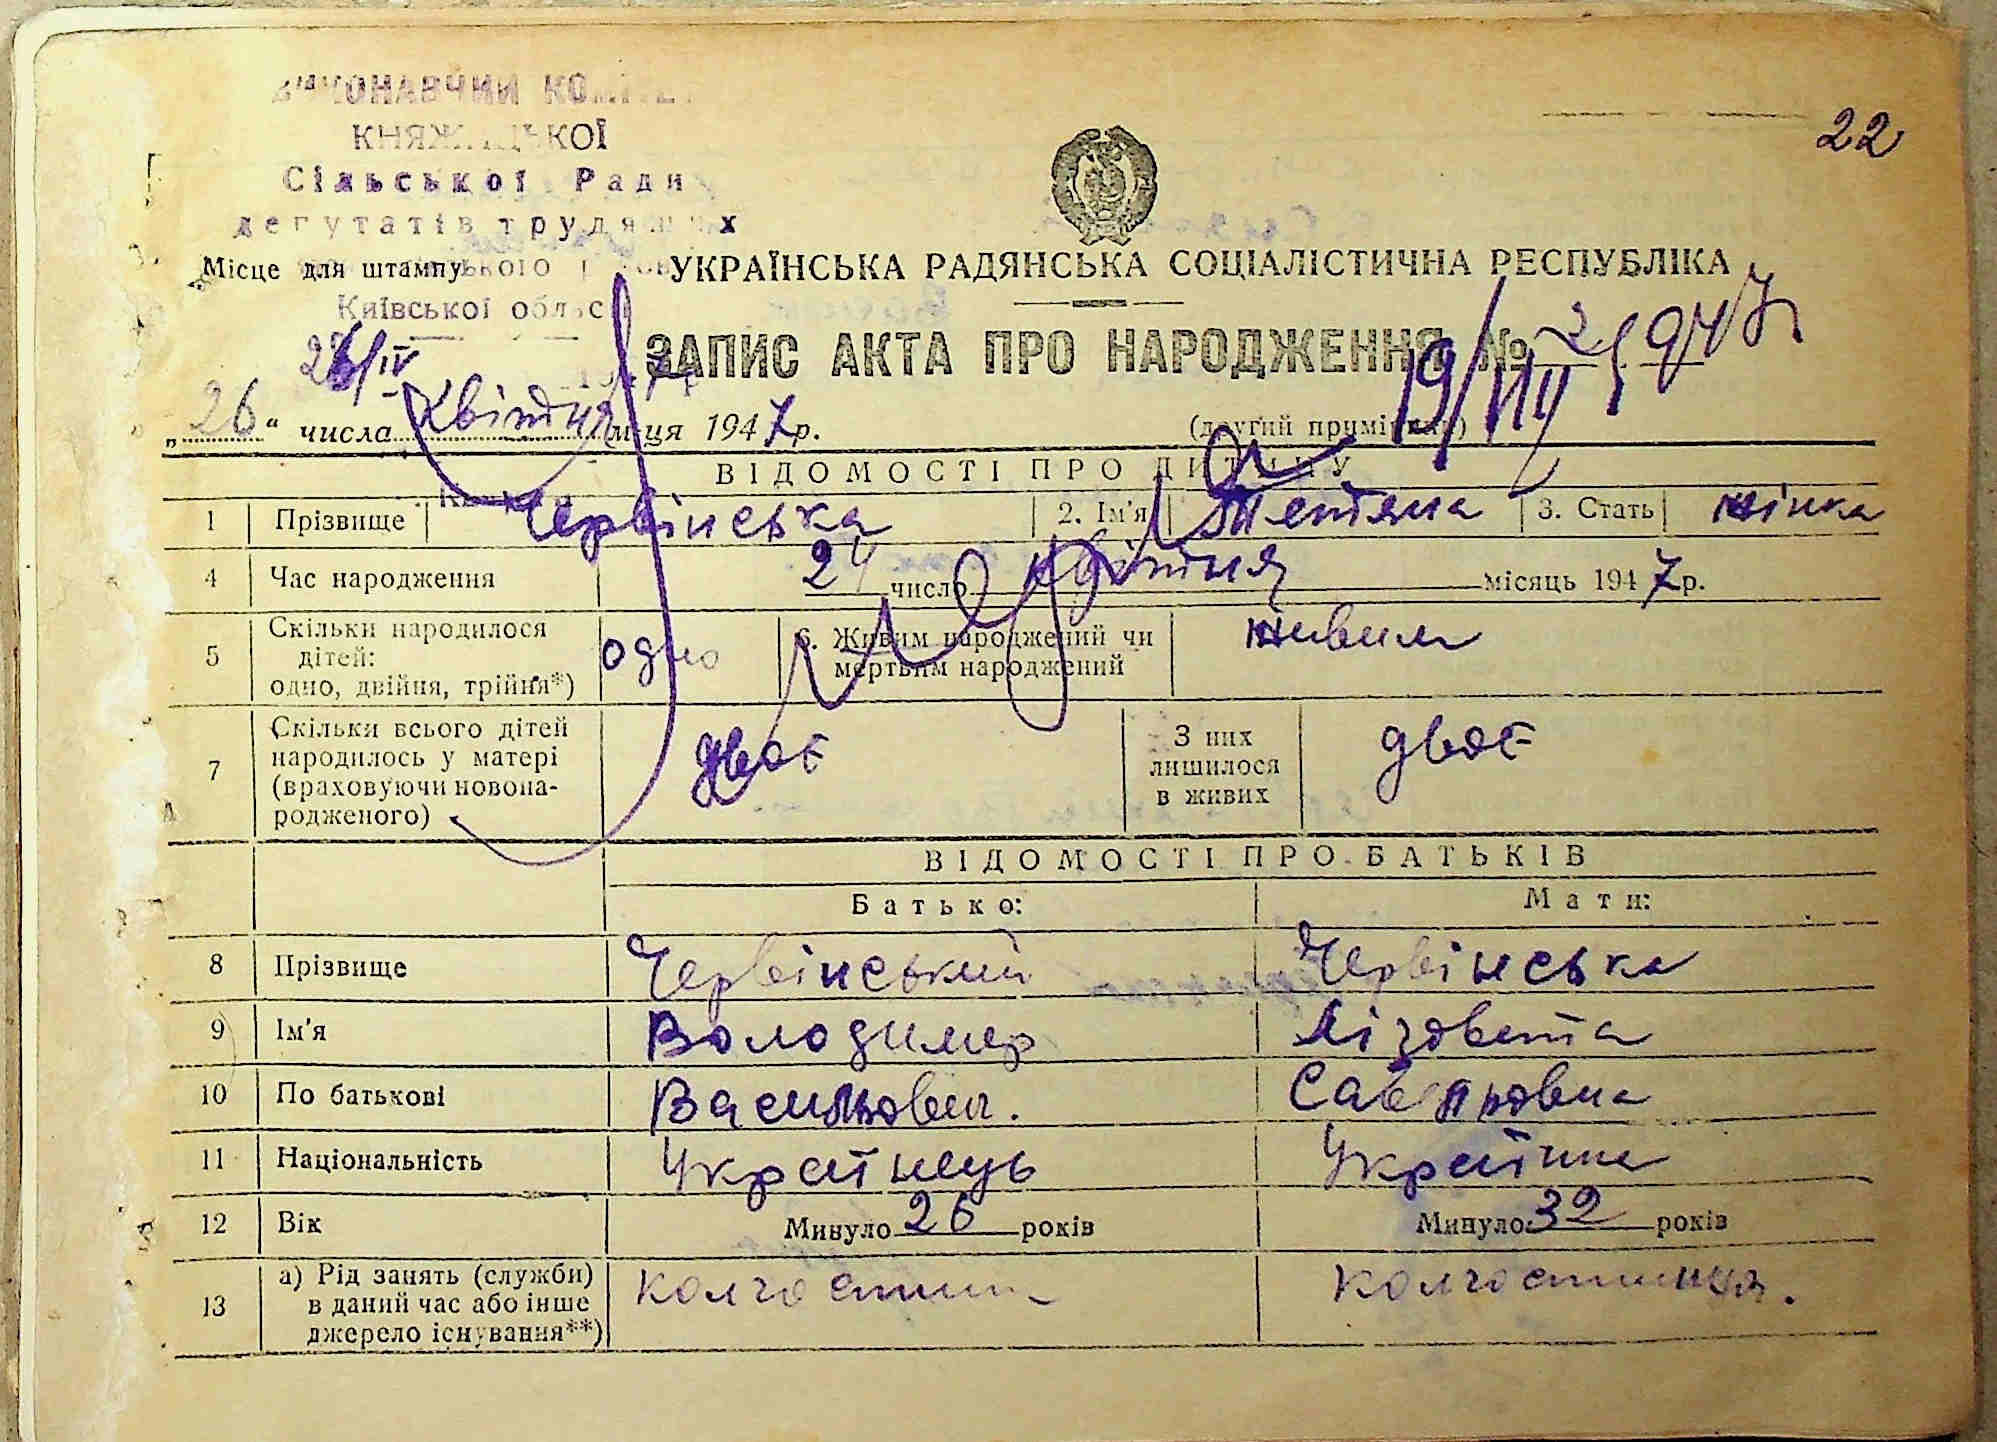 ВИКОНАВЧИЙ КОМІТЕТ
КНЯЖИЦЬКОЇ
Сільської Ради
депутатів трудящих
22
Місце для штампу
УКРАЇНСЬКА РАДЯНСЬКА СОЦІАЛІСТИЧНА РЕСПУБЛІКА
Київської області
ЗАПИС АКТА ПРО НАРОДЖЕННЯ №
26/IV
19/VIII 1947р.
„26“ числа Квітня м-ця 1947р.
(другий примірник)
ВІДОМОСТІ ПРО ДИТИНУ
1 Прізвище Червінська 2. Ім'я Тетяна 3. Стать жінка
4 Час народження 24 число квітня місяць 1947р.
5 Скільки народилося дітей: одно, двійня, трійня*) одно 6. Живим народжений чи мертвим народжений живим
7 Скільки всього дітей народилось у матері (враховуючи новонародженого) двоє З них лишилося в живих двоє
ВІДОМОСТІ ПРО БАТЬКІВ
Батько: Мати:
8 Прізвище Червінський Червінська
9 Ім'я Володимер Лізовета
10 По батькові Васильович.
11 Національність Українець Українка
12 Вік Минуло 26 років Минуло 32 років
13 а) Рід занять (служби) в даний час або інше джерело існування**) колгоспник колгоспниця.